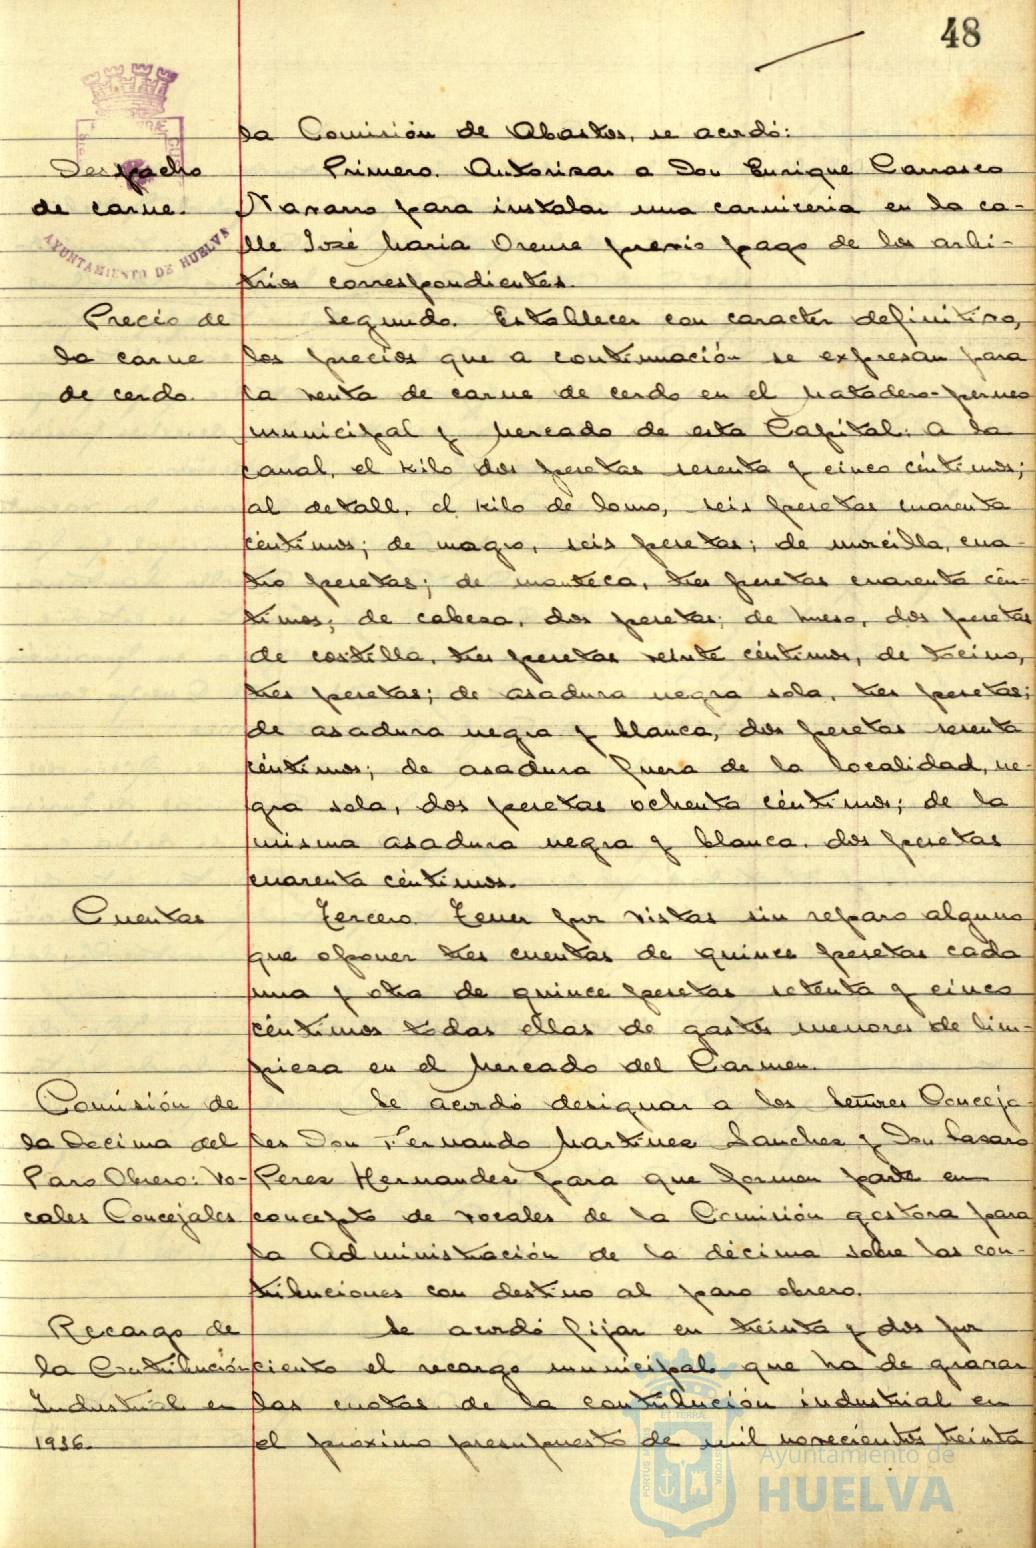 48
la Comisión de Abastos, se acordó:
Despacho
de carne.
Primero. Autorizar a Don Enrique Carrasco
Navarro para instalar una carniceria en la ca-
lle José Maria Orense previo pago de los arbi-
trios correspondientes.
AYUNTAMIENTO DE HUELVA
Precio de
la carne
de cerdo.
Segundo. Establecer con caracter definitivo,
los precios que a continuación se expresan para
la venta de carne de cerdo en el Matadero-
municipal y Mercado de esta Capital: a la
canal, el kilo dos pesetas sesenta y cinco céntimos;
al detall, el kilo de lomo, seis pesetas cuarenta
céntimos; de magro, seis pesetas; de morcilla, cua-
tro pesetas; de manteca, tres pesetas cuarenta cén-
timos; de cabeza, dos pesetas; de hueso, dos pesetas
de costilla, tres pesetas veinte céntimos, de tocino,
tres pesetas; de asadura negra sola, tres pesetas;
de asadura negra y blanca, dos pesetas sesenta
céntimos; de asadura fuera de la localidad, ne-
gra sola, dos pesetas ochenta céntimos; de la
misma asadura negra y blanca. dos pesetas
cuarenta céntimos.
Cuentas
Tercero. Tener por vistas sin reparo alguno
que oponer tres cuentas de quince pesetas cada
una y otra de quince pesetas setenta y cinco
céntimos todas ellas de gastos menores de lim-
pieza en el Mercado del Carmen.
Comisión de
la Decima del
Paro Obrero: Vo-
cales Concejales
Se acordó designar a los Señores Conceja-
les Don Fernando Martinez Sanchez y Don Lazaro
Perez Hernandez para que formen parte en
concepto de vocales de la Comisión gestora para
la Administración de la décima sobre las con-
tribuciones con destino al paro obrero.
Recargo de
la Contribución
Industrial en
1936.
Se acordó fijar en treinta y dos por
ciento el recargo municipal que ha de gravar
las cuotas de la contribución industrial en
el proximo presupuesto de mil novecientos treinta
Ayuntamiento de
HUELVA